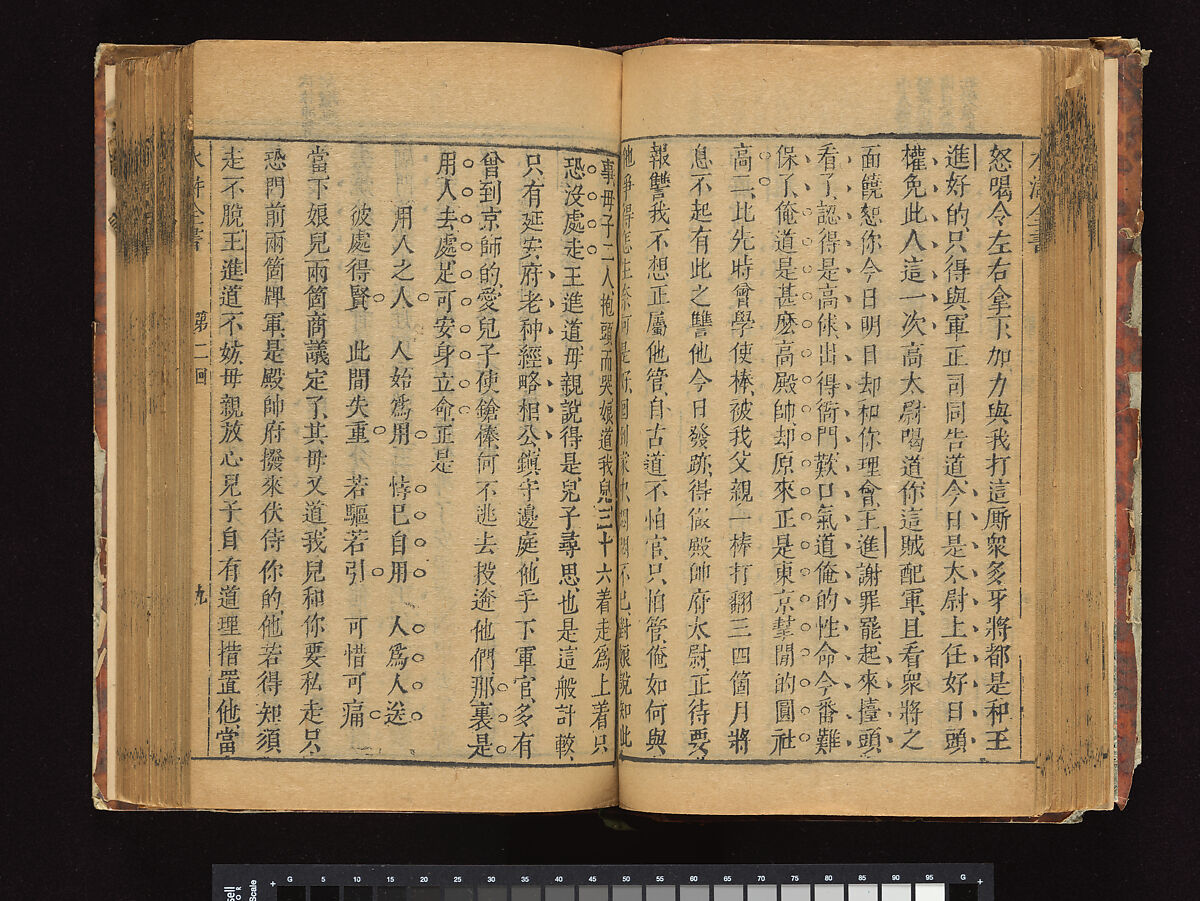 怒喝令左右拿下加力與我打這厮衆多牙將都是和王
進好的只得與軍正司同告道今日是太尉上任好日頭
權免此人這一次高太尉喝道你這賊配軍且看衆將之
面饒恕你今日明日却和你理會王進謝罪罷起來擡頭
看了認得是高俅出得衙門歎口氣道俺的性命今番難
保了俺道是甚麽高殿帥却原來正是東京幫閒的圓社
高二比先時曾學使棒被我父親一棒打翻三四箇月將
息不起有此之讐他今日發跡得做殿帥府太尉正待要
報讐我不想正屬他管自古道不怕官只怕管俺如何與
他爭得怎生奈何是好回到家中悶悶不已對娘說知此
事母子二人抱頭而哭娘道我兒三十六着走爲上着只
恐沒處走王進道母親說得是兒子尋思也是這般計較
只有延安府老种經略相公鎮守邊庭他手下軍官多有
曾到京師的愛兒子使鎗棒何不逃去投逩他們那裏是
用人去處足可安身立命正是
用人之人 人始爲用 恃己自用 人爲人送
彼處得賢 此間失重 若驅若引 可惜可痛
當下娘兒兩箇商議定了其母又道我兒和你要私走只
恐門前兩箇牌軍是殿帥府撥來伏侍你的他若得知須
走不脫王進道不妨母親放心兒子自有道理措置他當
水滸全書 第二回 九
G 5 10 15 20 25 30 35 40 45 50 55 60 65 70 75 80 85 90 95 G
Scale